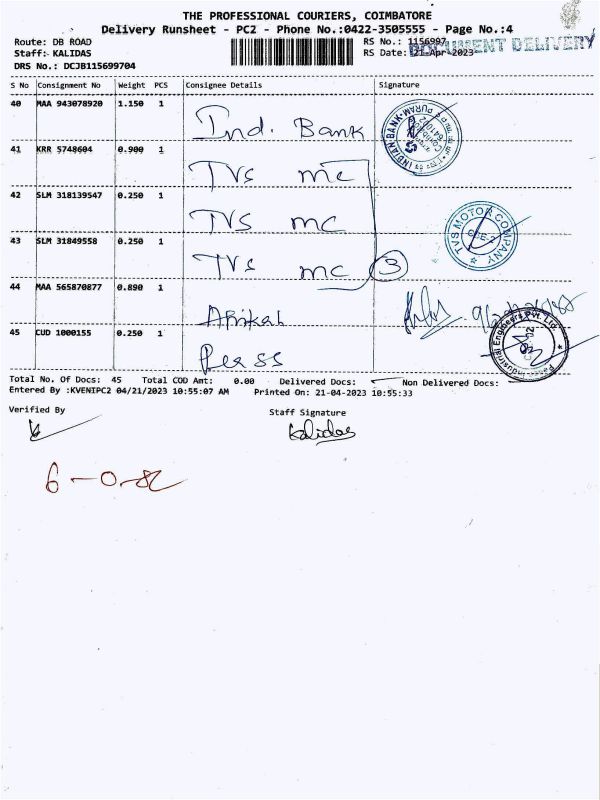 THE PROFESSIONAL COURIERS, COIMBATORE
Delivery Runsheet - PC2 - Phone No.:0422-3505555 - Page No.:4
Route: DB ROAD
RS No.: 1156997
DOCUMENT DELIVERY
Staff: KALIDAS
RS Date: 21-Apr-2023
DRS No.: DCJB115699704
S No Consignment No Weight PCS Consignee Details Signature
40 MAA 943078920 1.150 1
Ind. Bank
INDIAN BANK PURAM
41 KRR 5748604 0.900 1
TVS mc
42 SLM 318139547 0.250 1
TVS mc
TVS MOTOR COMPANY
43 SLM 31849558 0.250 1
TVS mc 3
44 MAA 565870877 0.890 1
45 CUD 1000155 0.250 1
Industrial Engineers Pvt. Ltd
Total No. Of Docs: 45 Total COD Amt: 0.00 Delivered Docs: Non Delivered Docs:
Entered By :KVENIPC2 04/21/2023 10:55:07 AM Printed On: 21-04-2023 10:55:33
Verified By Staff Signature
Kalidas